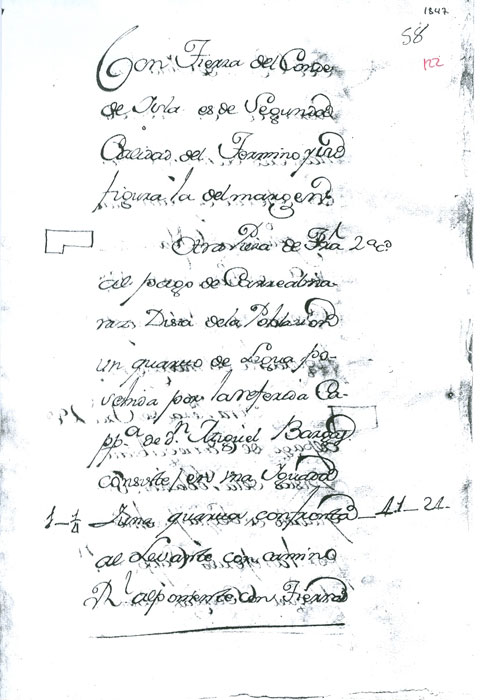 1847
58
122
Con Tierra del Conde
de Aula es de Segunda
Calidad del Termino y su
figura la del margen
Otra Pieza de Tra 2ª cd
al pago de
raz Dista de la Poblacion
un quarto de Legua po-
sehida por la referida Ca-
ppª de Dn Miguel Bargas
consiste en una Iguada
1—1/4 y una quarta confronta 41—21.
al Levante con camino
Rl al poniente con Tierra